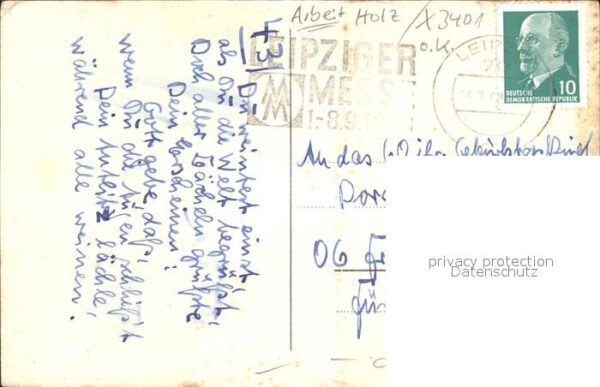 Arbeit Holz
X3401
o.K.
LEIPZIGER
MESSE
1.-8.9.
LEIPZIG
DEUTSCHE
DEMOKRATISCHE REPUBLIK
10
43)
Du weintest einst,
als Du die Welt begrüßt,
Doch aller Lächeln grüßte
Dein Erscheinen!
Gott gebe, daß,
wenn Du die Augen schließt
Dein Antlitz lächle,
während alle weinen.
An das Geburtstagskind
06
privacy protection
Datenschutz